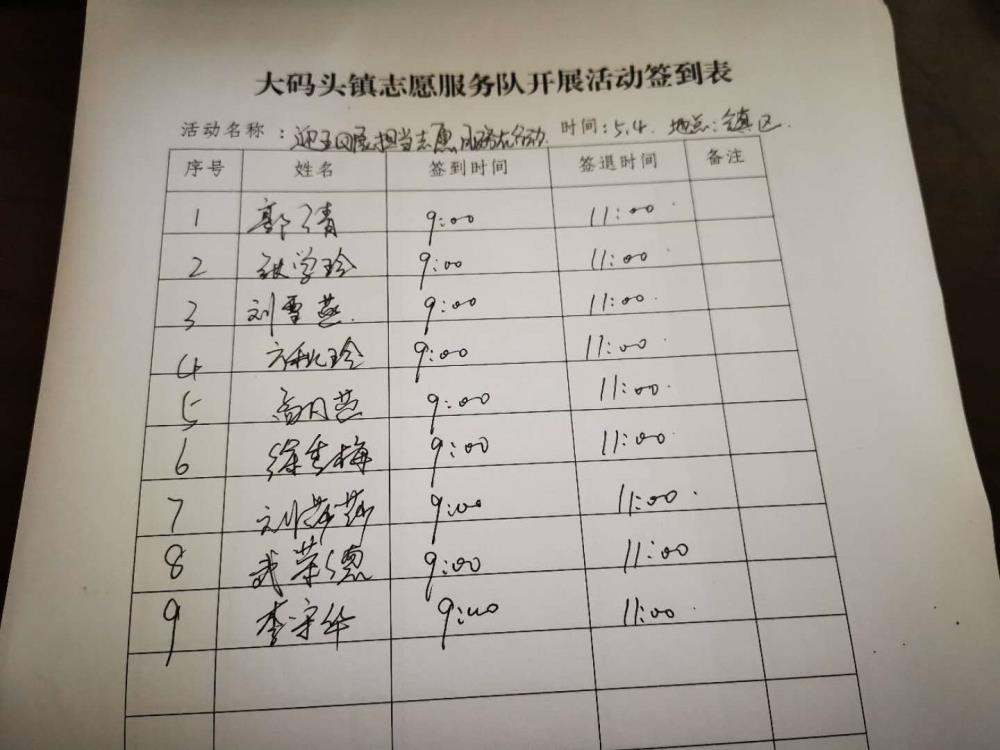 大码头镇志愿服务队开展活动签到表
活动名称：迎五四展担当志愿服务在行动 时间：5.4. 地点：镇区.
序号 姓名 签到时间 签退时间 备注
1 郭倩 9:00 11:00
2 张学玲 9:00 11:00
3 刘雪燕 9:00 11:00
4 玲 9:00 11:00
5 高月燕 9:00 11:00
6 徐秀梅 9:00 11:00
7 刘莎莎 9:00 11:00
8 武荣德 9:00 11:00
9 李守华 9:00 11:00